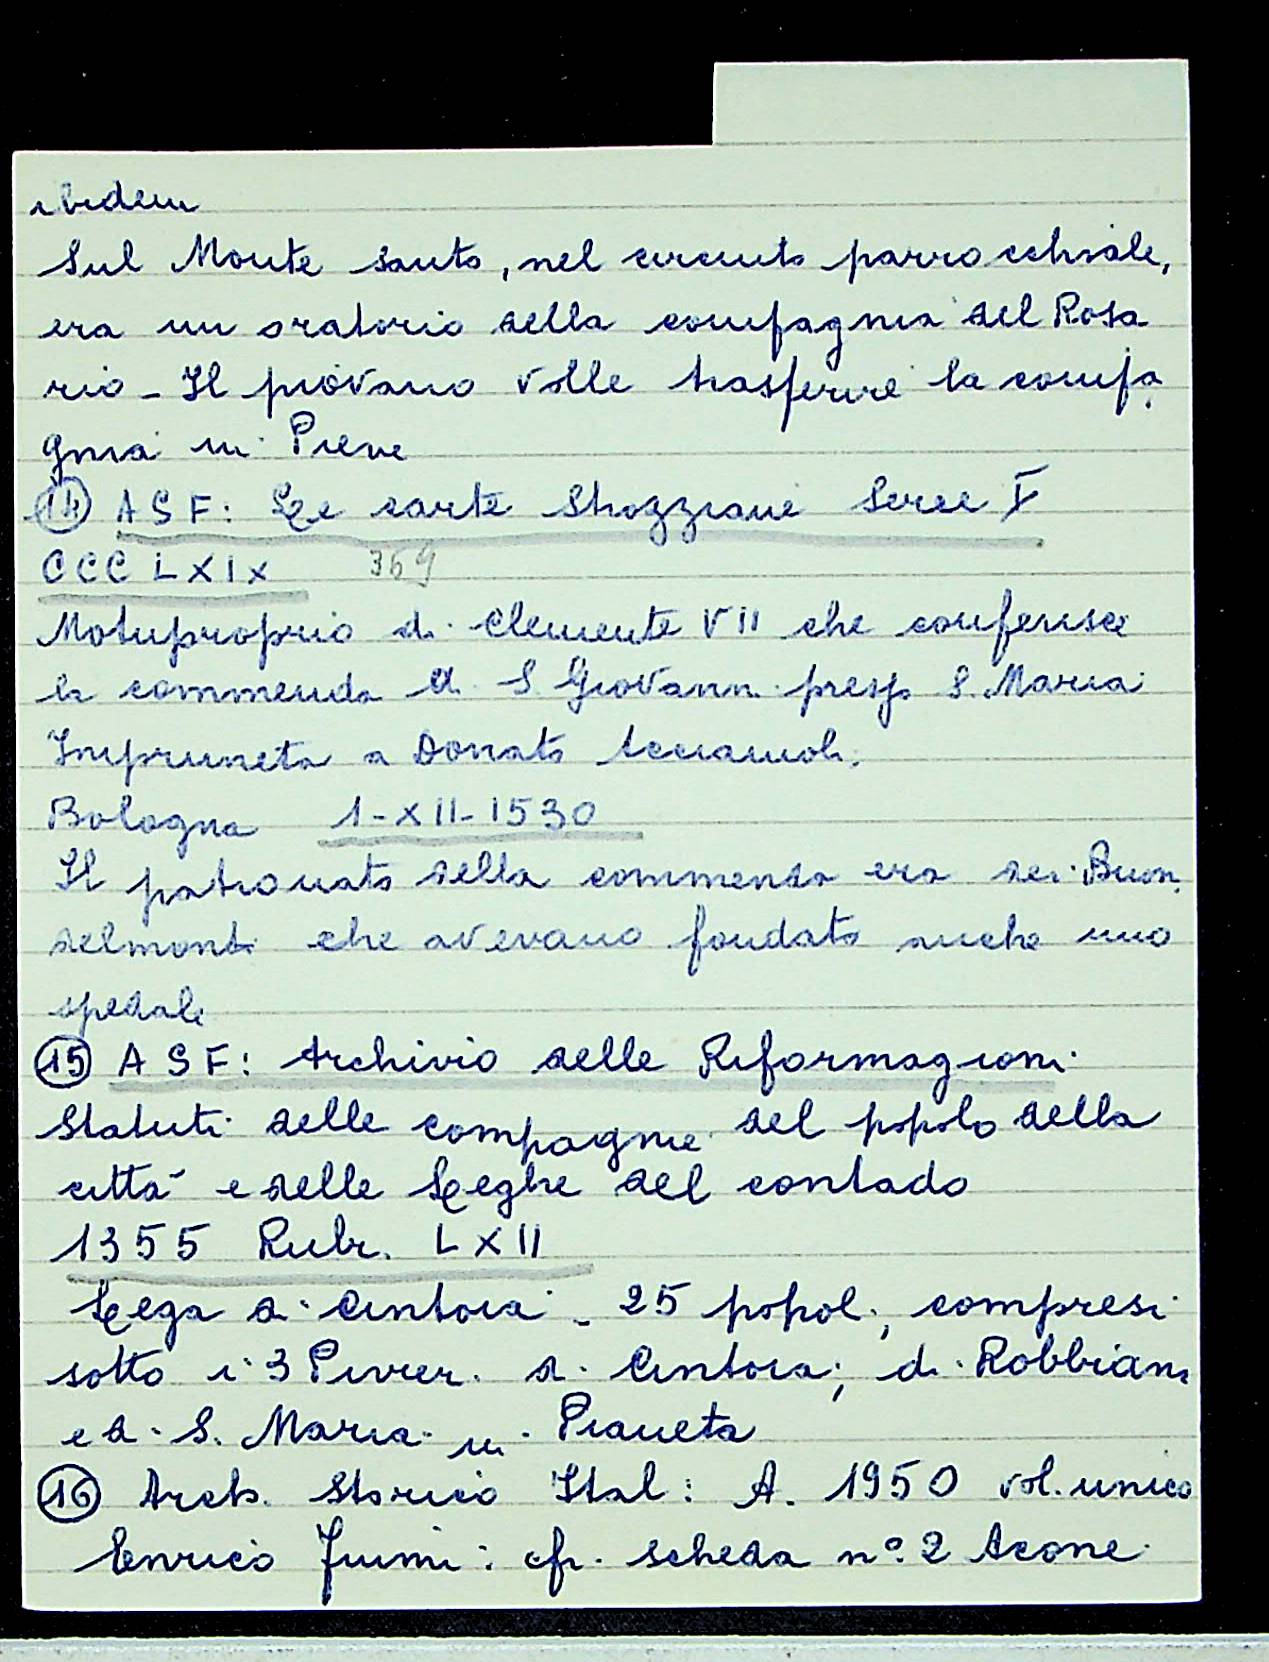 ibidem
Sul Monte santo, nel circuito parrocchiale,
era un oratorio della compagnia del Rosa
rio - Il piovano volle trasferire la compa
gnia in Pieve
14 ASF: Le carte Strozziane Serie I
CCCLXIX 369
Motuproprio di Clemente VII che conferisce
la commenda di S. Giovanni presso S. Maria
Impruneta a Donato Acciaiuoli.
Bologna 1-XII-1530
Il patronato della commenda era dei Buon
delmonti che avevano fondato anche uno
spedale
15 ASF: Archivio delle Riformagioni
Statuti delle compagnie del popolo della
città e delle Leghe del contado
1355 Rubr. LXII
Lega di Cintoia - 25 popoli, compresi
sotto i 3 Pivieri di Cintoia; di Robbiana
e di S. Maria in Pianeta
16 Arch. Storico Ital: A. 1950 vol. unico
Enrico Fiumi: cfr. scheda n° 2 Acone